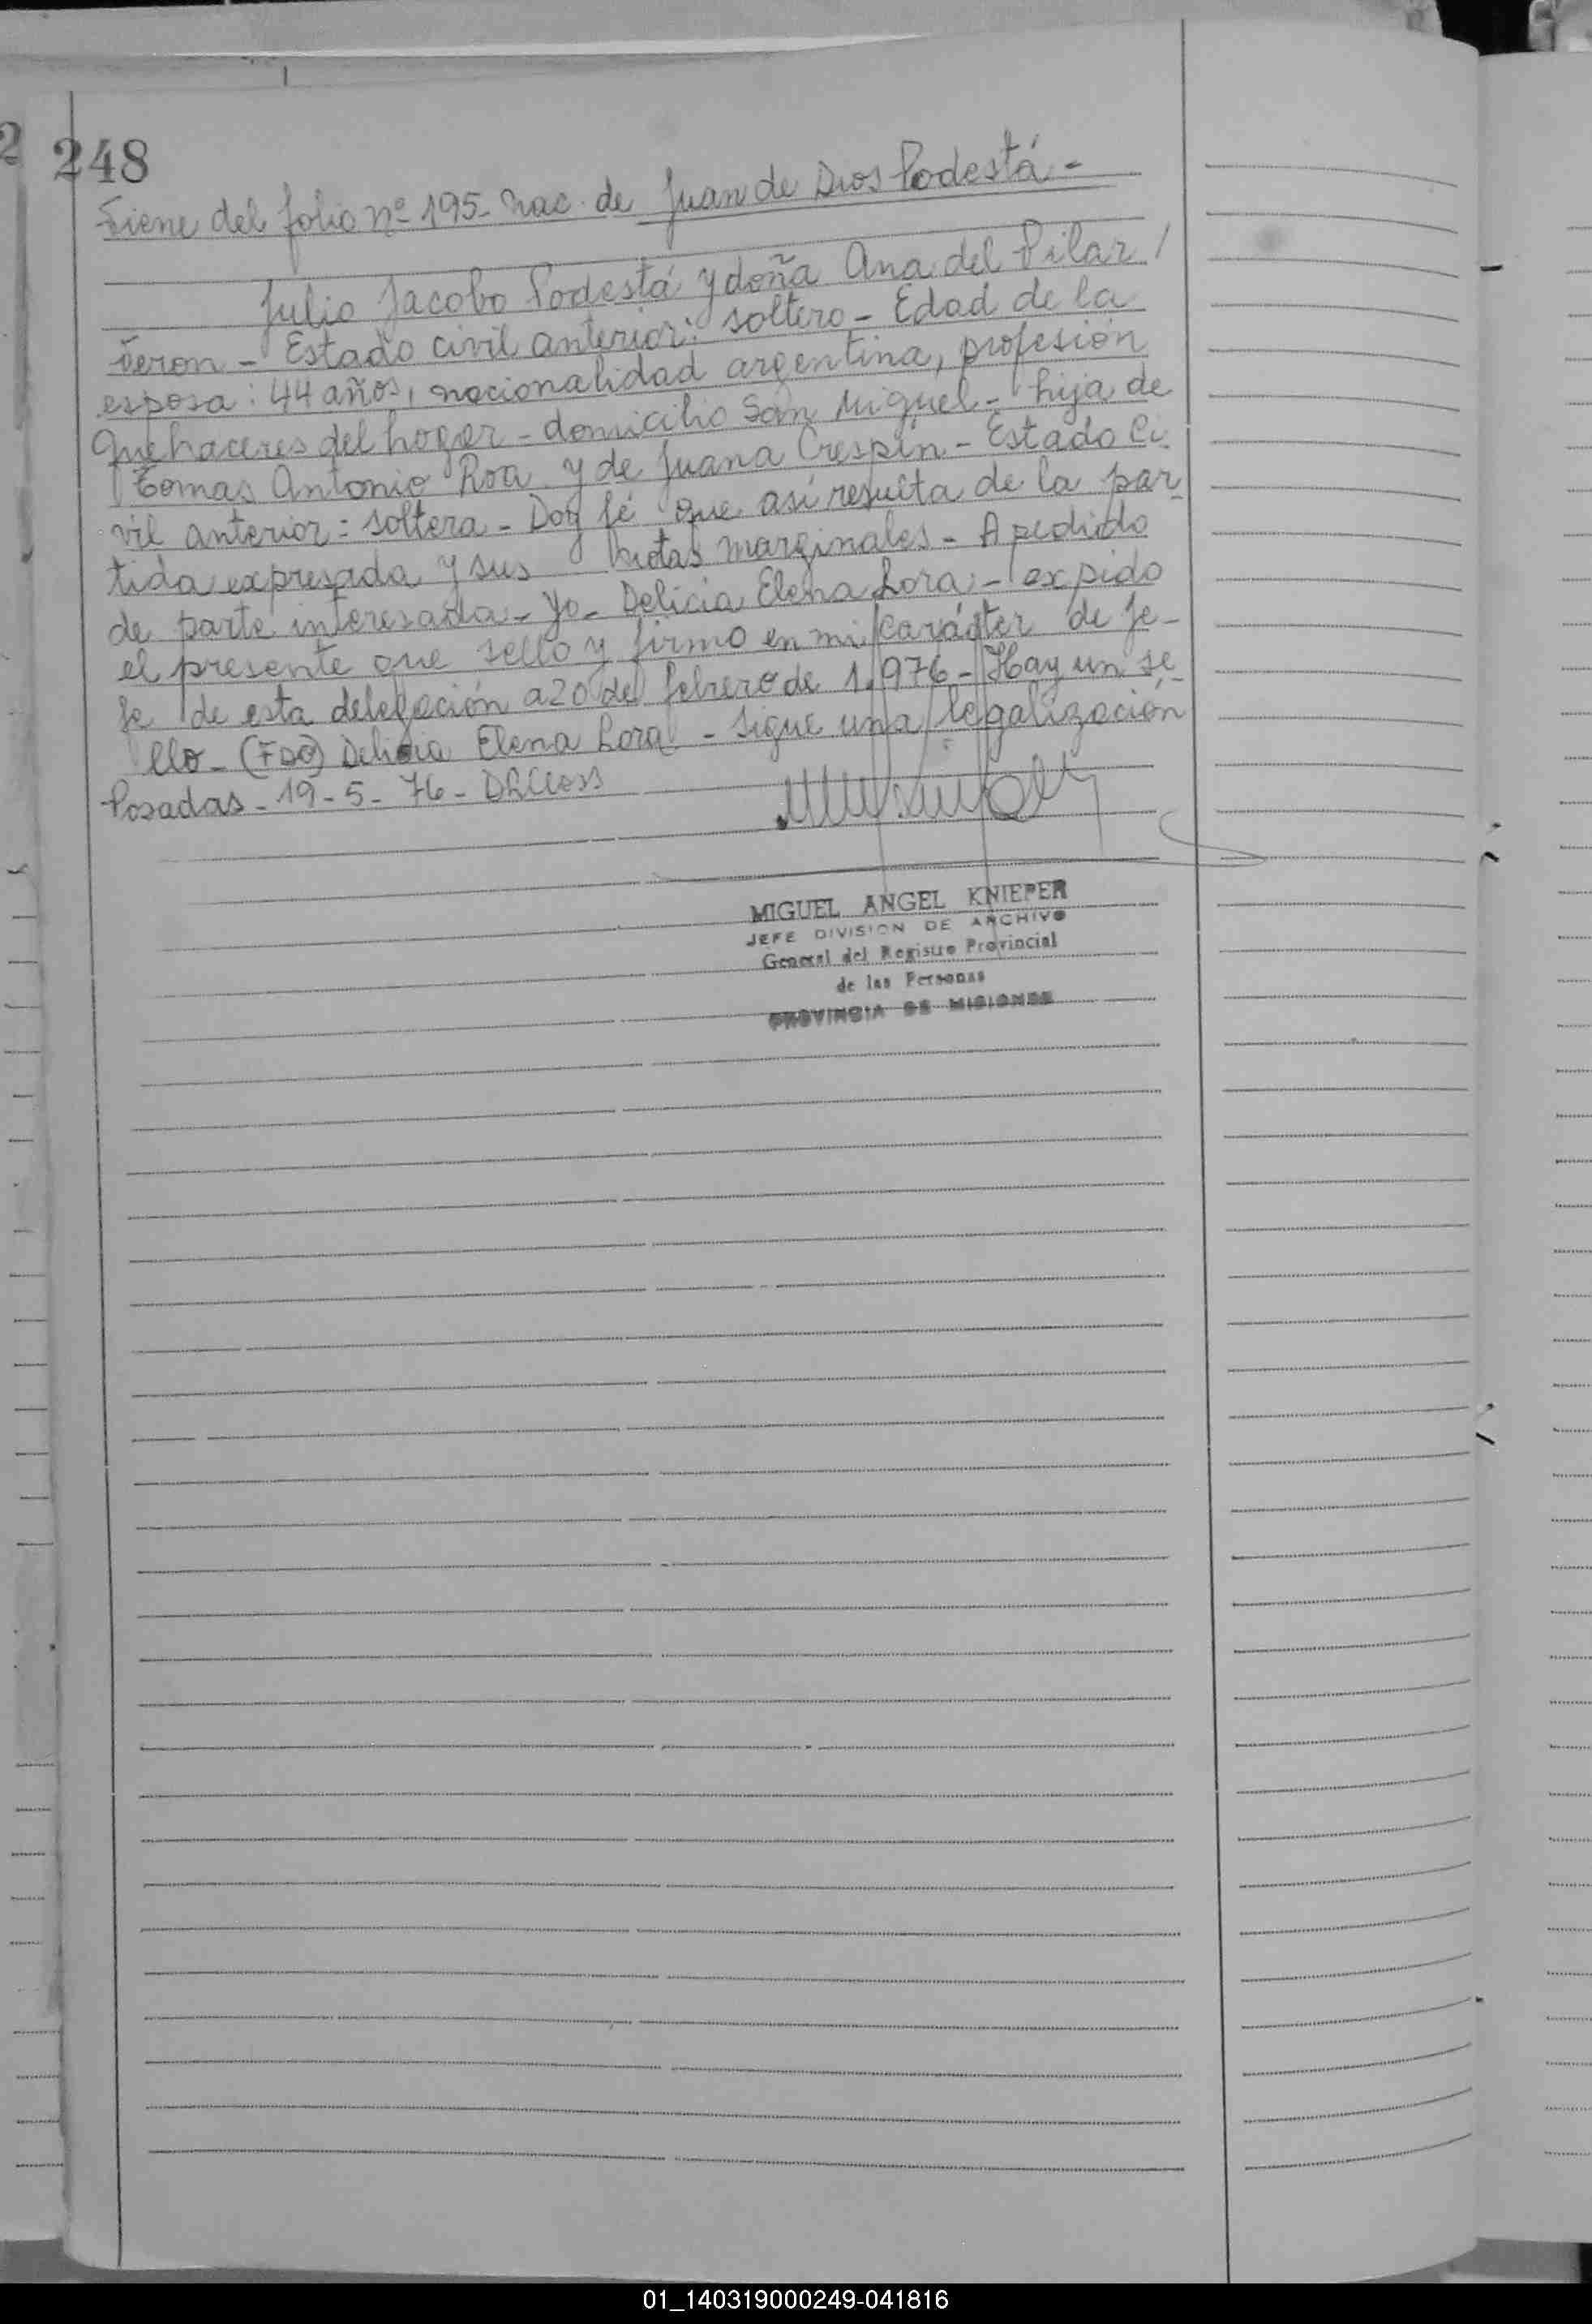 2
248
Viene del folio nº 195- Nac. de Juan de Dios Podestá -
Julio Jacobo Podestá y doña Ana del Pilar /
Veron - Estado civil anterior: soltero - Edad de la
esposa: 44 años, nacionalidad argentina, profesión
Quehaceres del hogar - domicilio San Miguel - hija de
Tomas Antonio Roa y de Juana Crespín - Estado Ci-
vil anterior: soltera - Doy fé que así resulta de la par-
tida expresada y sus Notas Marginales - A pedido
de parte interesada - Yo - Delicia Elena Lora - expido
el presente que sello y firmo en mi carácter de Je-
fe de esta delegación a 20 de febrero de 1.976 - Hay un se-
llo - (FDO) Delicia Elena Lora - Sigue una legalización
Posadas - 19 - 5 - 76 -
MIGUEL ANGEL KNIEPER
JEFE DIVISION DE ARCHIVO
General del Registro Provincial
de las Personas
PROVINCIA DE MISIONES
01_140319000249-041816